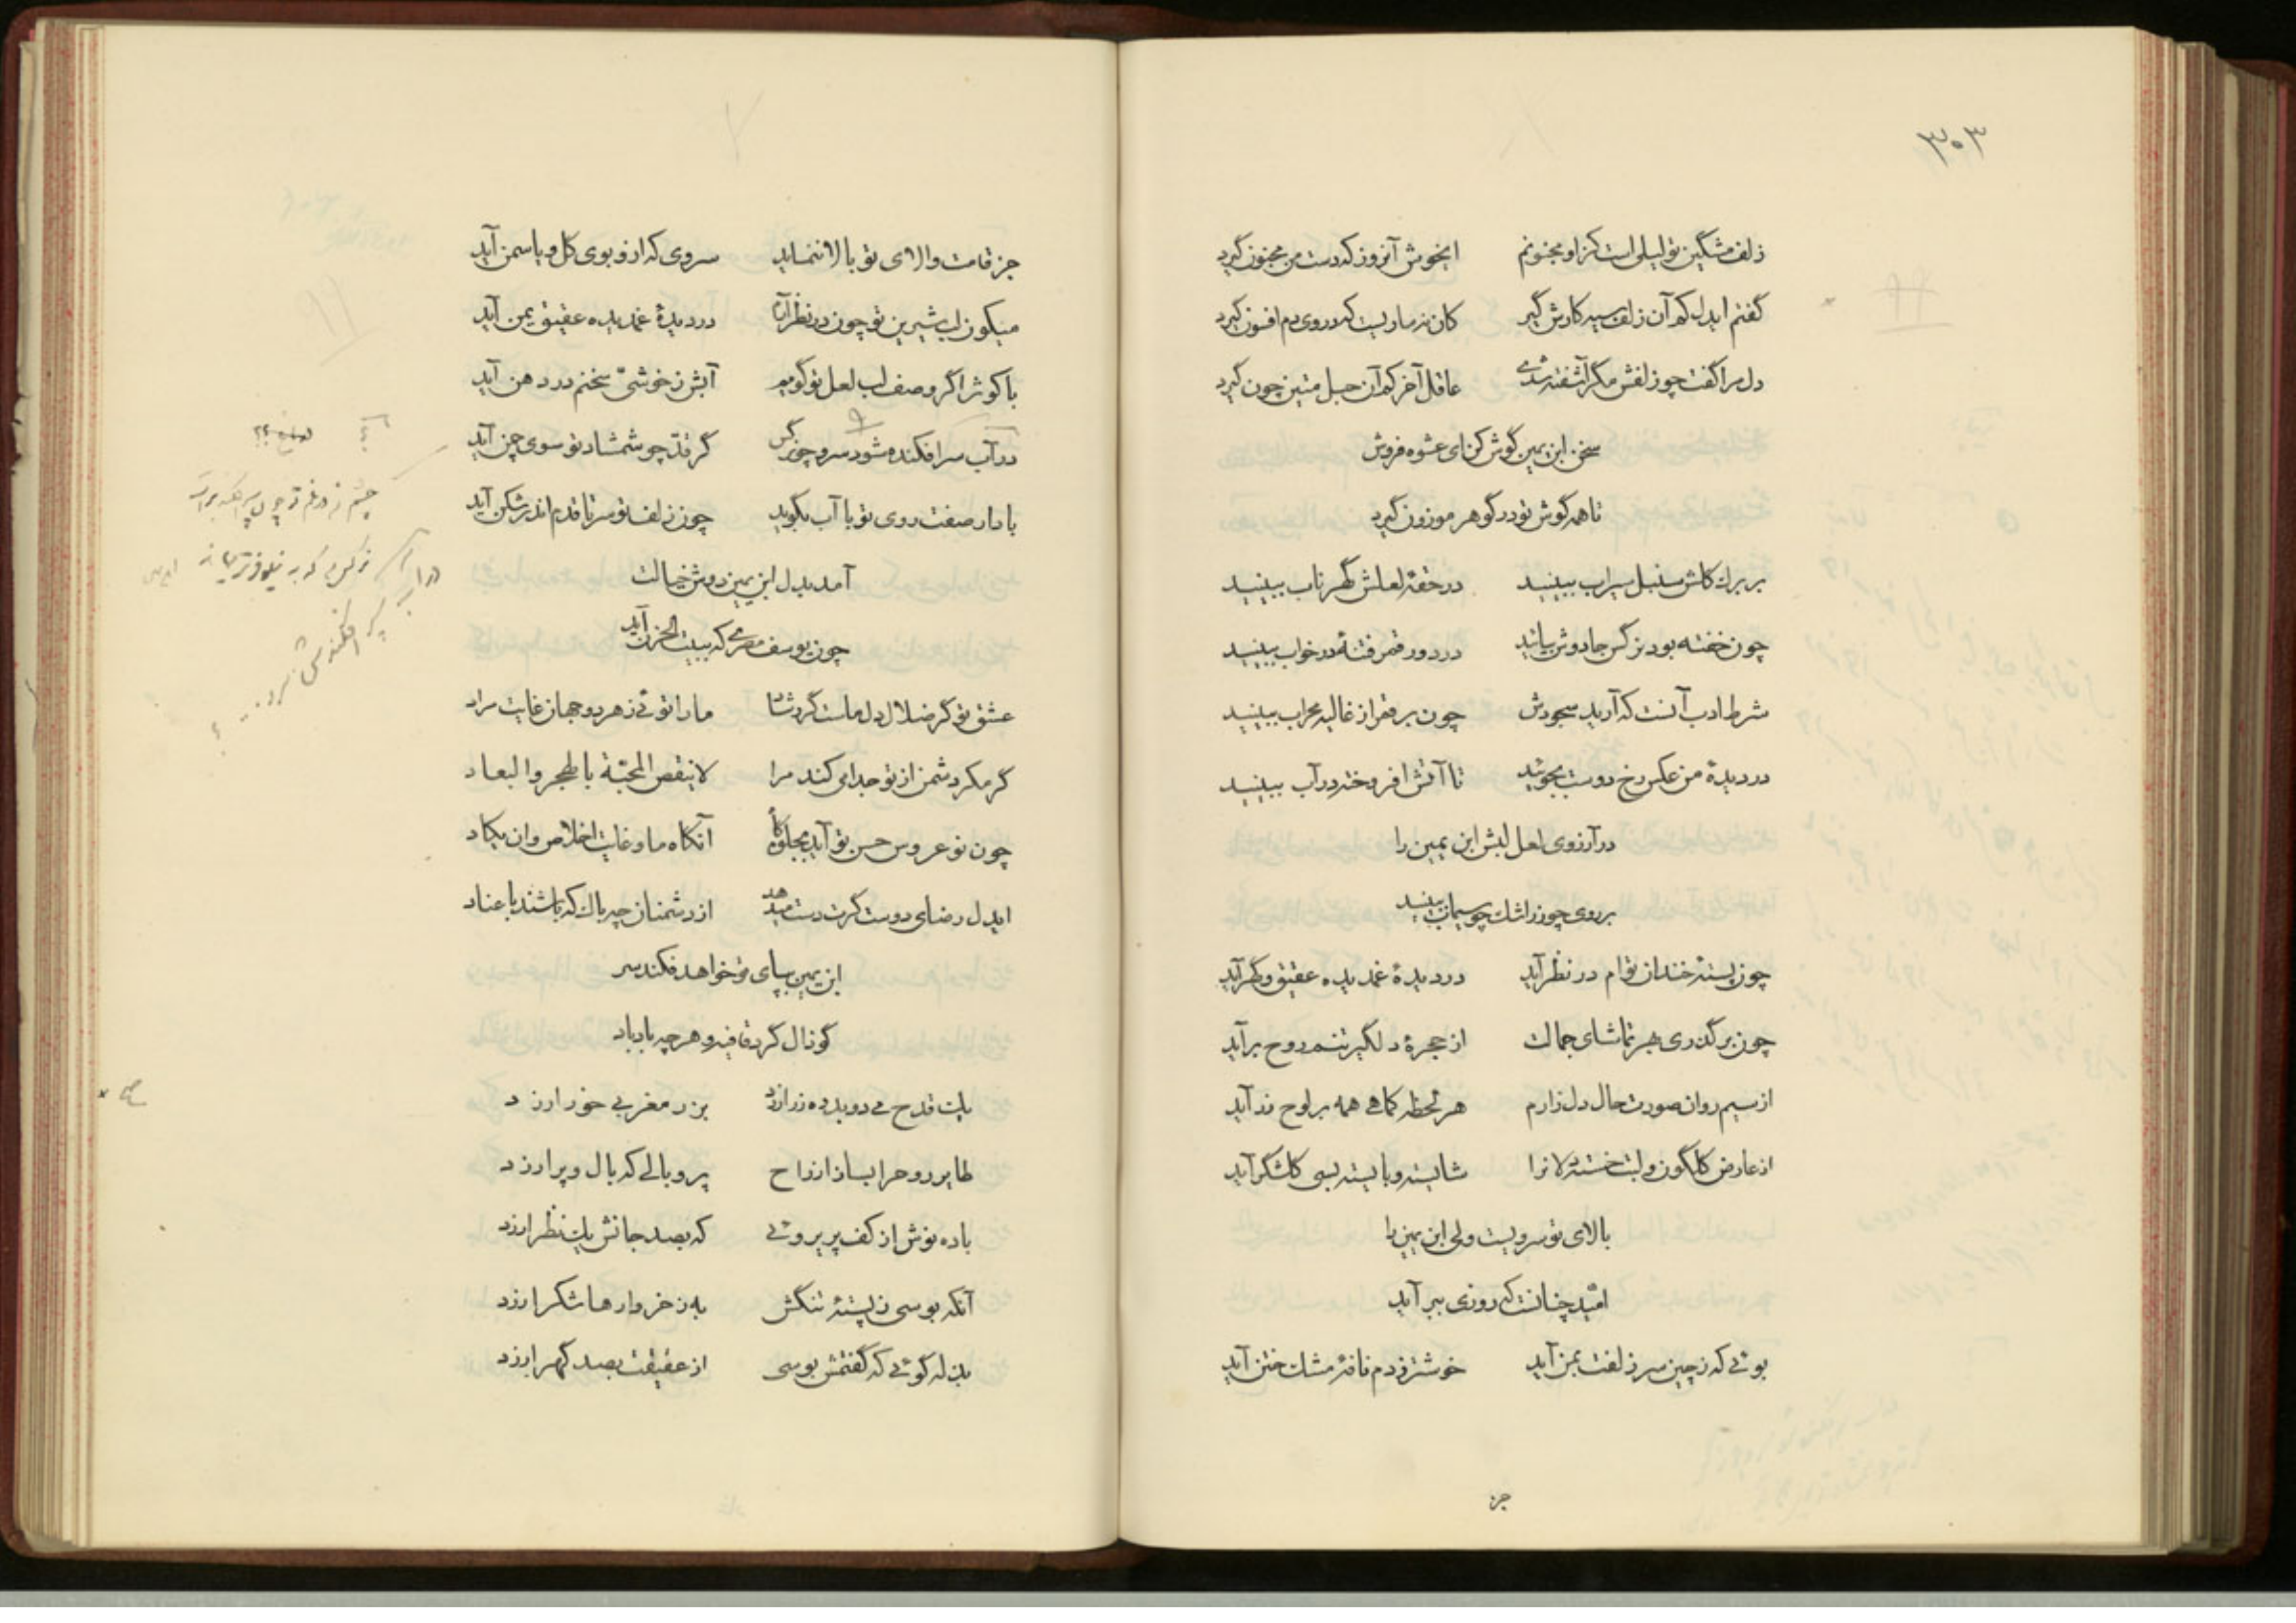 ۳۰۳
زلف مشگین تو لیلی است کزاو مجنونم ایخوش آنروز که دست من مجنون گیرد
گفتم ایدل کم آن زلف سیه کارش گیر کان نه ماریست که در وی دم افسون گیرد
دل مرا گفت چو زلفش مگر آشفته شدی عاقل آخر کم آن حبل متین چون گیرد
سخن ابن یمین گوش کن ای عشوه فروش
تا همه گوش تو در گوهر موزون گیرد
بر برک کلش سنبل سیراب ببینید در حقهٔ لعلش گهر ناب ببینید
چون خفته بود نرگس جادوش بیائید در دور قمر فتنهٔ در خواب ببینید
شرط ادب آنست که آرید سجودش چون بر قمر از غالیه محراب ببینید
در دیدهٔ من عکس رخ دوست بجوئید تا آتش افروخته در آب ببینید
در آرزوی لعل لبش ابن یمین را
بر روی چو زر اشک چو سیماب ببینید
چون پستهٔ خندان توام در نظر آید در دیدهٔ غمدیده عقیق و گهر آید
چون برگذری بهر تماشای جمالت از حجرهٔ دلگیر تنم روح برآید
از سیم روان صورت حال دل زارم هر لحظه کماهی همه بر لوح زر آید
از عارض گلگون و لبت خسته دلانرا شایسته و بایسته بسی گلشکر آید
بالای تو سرویست ولی ابن یمین را
امّید چنانست که روزی ببر آید
بوئی که ز چین سر زلفت بمن آید خوشتر ز دم نافهٔ مشک ختن آید
جز
جز قامت والای تو بالا ننماید سروی که ازو بوی گل و یاسمن آید
میگون لب شیرین تو چون در نظر آرم در دیدهٔ غمدیده عقیق یمن آید
با کوثر اگر وصف لب لعل تو گویم آبش ز خوشیّ سخنم در دهن آید
در آب سرافکنده شود سرو چو نرگس گر قدّ چو شمشاد تو سوی چمن آید
با دار صفت روی تو با آب بگوید چون زلف تو سر تا قدم اندر شکن آید
آمد بدل ابن یمین دوش خیالت
چون یوسف مصری که ببیت الحزن آید
عشق تو گر ضلال دل ماست گر رشاد ما را توئی ز هر دو جهان غایت مراد
گر مکر دشمن از تو جدایی کند مرا لاینقص المحبّة بالهجر والبعاد
چون نو عروس حسن تو آید بجلوه‌گاه آنگاه ما و غایت اخلاص وان یکاد
ایدل رضای دوست گرت دست میدهد از دشمنان چه باک که باشند با عناد
ابن یمین بپای تو خواهد فکند سر
گو ذال گرد قافیه و هر چه باد باد
یک قدح می دو بدره زر ارزد بزر مغربی خور ارزد
طایر روح را بساز از راح پر و بالی که بال و پر ارزد
باده نوش از کف پریروئی که بصد جانش یک نظر ارزد
آنکه بوسی ز پستهٔ تنگش به ز خروارها شکر ارزد
بذله گوئی که گفتمش بوسی از عقیقت بصد گهر ارزد